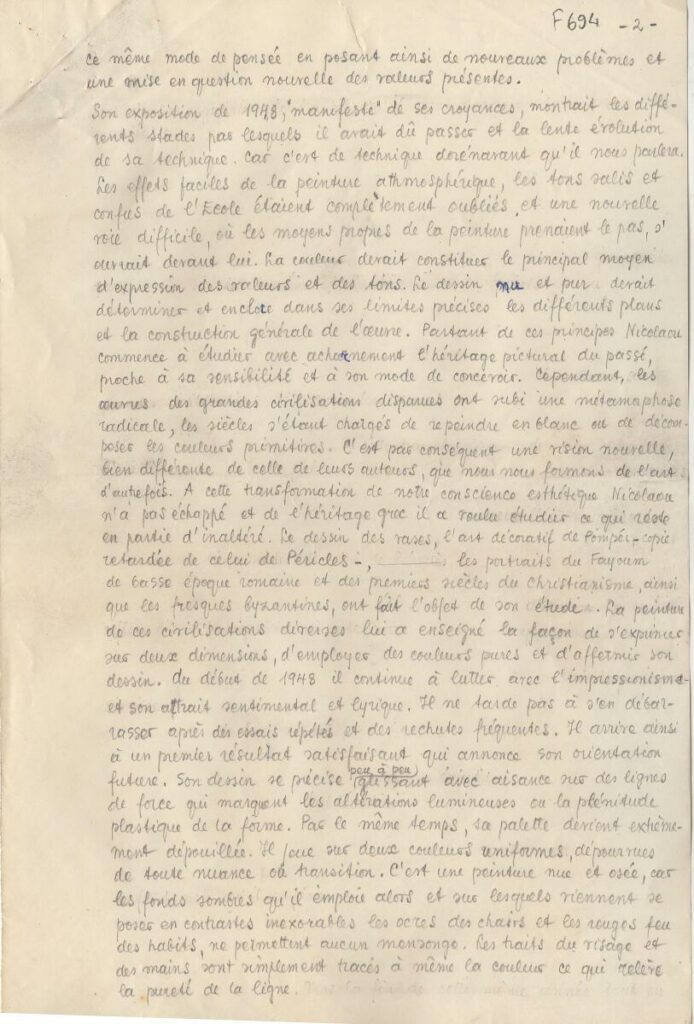 F694 -2-
ce même mode de pensée en posant ainsi de nouveaux problèmes et
une mise en question nouvelle des valeurs présentes.
Son exposition de 1948, "manifeste" de ses croyances, montrait les diffé-
rents stades par lesquels il avait dû passer et la lente évolution
de sa technique. Car c'est de technique dorénavant qu'il nous parlera.
Les effets faciles de la peinture athmosphérique, les tons salis et
confus de l'Ecole étaient complètement oubliés et une nouvelle
voie difficile, où les moyens propres de la peinture prenaient le pas, s'
ouvrait devant lui. La couleur devait constituer le principal moyen
d'expression des valeurs et des tons. Le dessin nu et pur devait
déterminer et enclore dans ses limites précises les différents plans
et la construction générale de l'œuvre. Partant de ces principes Nicolaou
commence à étudier avec acharnement l'héritage pictural du passé,
proche à sa sensibilité et à son mode de concevoir. Cependant, les
œuvres des grandes civilisations disparues ont subi une métamorphose
radicale, les siècles s'étant chargés de repeindre en blanc ou de décom-
poser les couleurs primitives. C'est par conséquent une vision nouvelle,
bien différente de celle de leurs auteurs, que nous nous formons de l'art
d'autrefois. A cette transformation de notre conscience esthétique Nicolaou
n'a pas échappé et de l'héritage grec il a voulu étudier ce qui reste
en partie d'inaltéré. Le dessin des vases, l'art décoratif de Pompéi - copie
retardée de celui de Périclès -, les portraits du Fayoum
de basse époque romaine et des premiers siècles du Christianisme, ainsi
que les fresques byzantines, ont fait l'objet de son étude. La peinture
de ces civilisations diverses lui a enseigné la façon de s'exprimer
sur deux dimensions, d'employer des couleurs pures et d'affermir son
dessin. Du début de 1948 il continue à lutter avec l'impressionisme
et son attrait sentimental et lyrique. Il ne tarde pas à s'en débar-
rasser après des essais répétés et des rechutes fréquentes. Il arrive ainsi
à un premier résultat satisfaisant qui annonce son orientation
future. Son dessin se précise peu à peu glissant avec aisance sur des lignes
de force qui marquent les altérations lumineuses ou la plénitude
plastique de la forme. Par le même temps, sa palette devient extrême-
ment dépouillée. Il joue sur deux couleurs uniformes, dépourvues
de toute nuance ou transition. C'est une peinture nue et osée, car
les fonds sombres qu'il emploie alors et sur lesquels viennent se
poser en contrastes inexorables les ocres des chairs et les rouges feu
des habits, ne permettent aucun mensonge. Les traits du visage et
des mains sont simplement tracés à même la couleur ce qui relève
la pureté de la ligne.